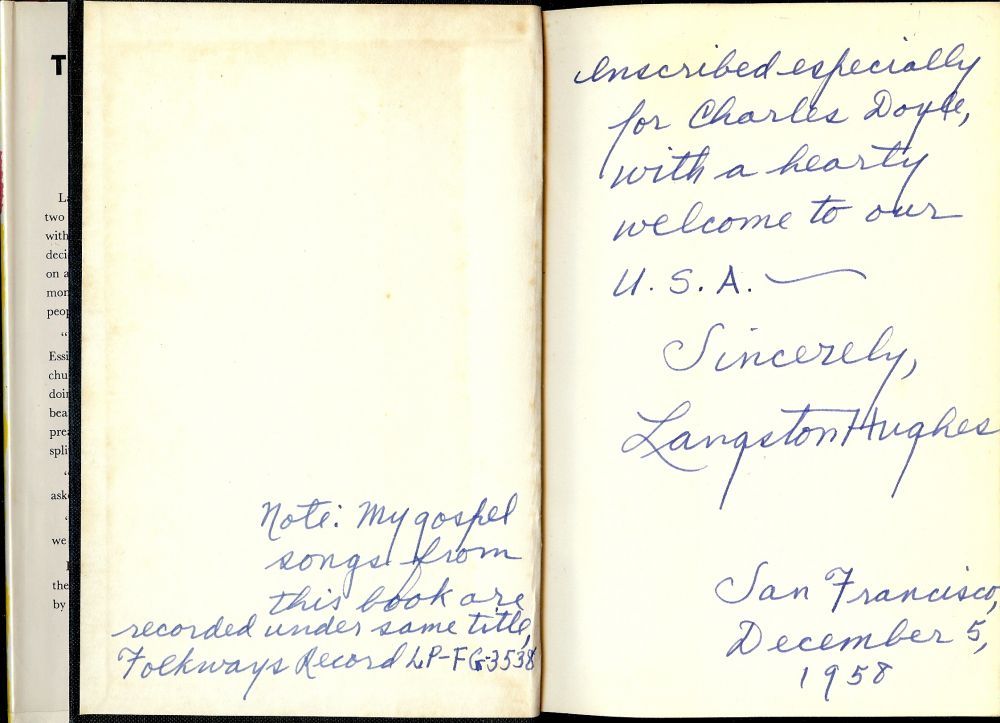 T
La
two
with
deci
on a
mor
peop
“
Essi
chu
doin
bea
prea
spli
“
ask
‘
we
the
by
Note: My gospel
songs from
this book are
recorded under same title,
Folkways Record LP-FG-3538
Inscribed especially
for Charles Doyle,
with a hearty
welcome to our
U. S. A. —
Sincerely,
Langston Hughes
San Francisco,
December 5,
1958